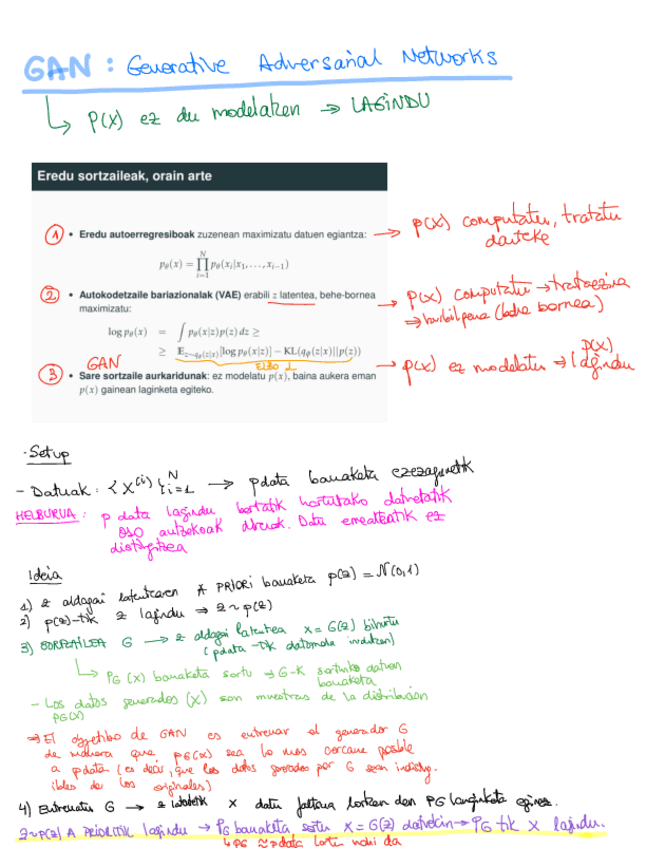 GAN : Generative Adversarial Networks
↳ p(x) ez du modelatzen → LAGINDU
Eredu sortzaileak, orain arte
① • Eredu autoerregresiboak zuzenean maximizatu datuen egiantza: → p(x) computatu, tratatu daiteke
pθ(x) = ∏_{i=1}^{N} pθ(xi|x1, . . . , xi−1)
② • Autokodetzaile bariazionalak (VAE) erabili z latentea, behe-bornea → p(x) computatu → trataezina
maximizatu: ⇒ hurbilpena (behe bornea)
log pθ(x) = ∫ pθ(x|z)p(z) dz ≥
≥ E_{z∼qθ(z|x)}[log pθ(x|z)] − KL(qθ(z|x)||p(z))
GAN ELBO
③ • Sare sortzaile aurkaridunak: ez modelatu p(x), baina aukera eman → p(x) ez modelatu → p(x) lagindu
p(x) gainean laginketa egiteko.
· Setup
- Datuak : {x^(i)}_{i=1}^N → pdata banaketa ezezagunetik
HELBURUA : p data lagindu bertatik hortutako datuetatik
oso antzekoak direnak. Datu errealetatik ez
distingitzea
Ideia
1) z aldagai latentearen A PRIORI banaketa p(z) = N(0,1)
2) p(z)-tik z lagindu ⇒ z ~ p(z)
3) SORTZAILEA G → z aldagai latentea x = G(z) bihurtu
(pdata -tik datorrela)
↳ PG (x) banaketa sortu ⇒ G-k sortutako datuen
banaketa
- Los datos generados (x) son muestras de la distribución
PG(x)
⇒ El objetibo de GAN es entrenar el generador G
de manera que pG(x) sea lo mas cercano posible
a pdata (es decir, que los datos generados por G sean indisting.
ibles de los originales)
4) Entrenatu G → z x datu lortzen den PG laginketa eginez.
z~p(z) A PRIORITIK lagindu → PG banaketa sortu x = G(z) datuekin → PG tik x lagindu.
↳ PG ≈ pdata lortu nahi da